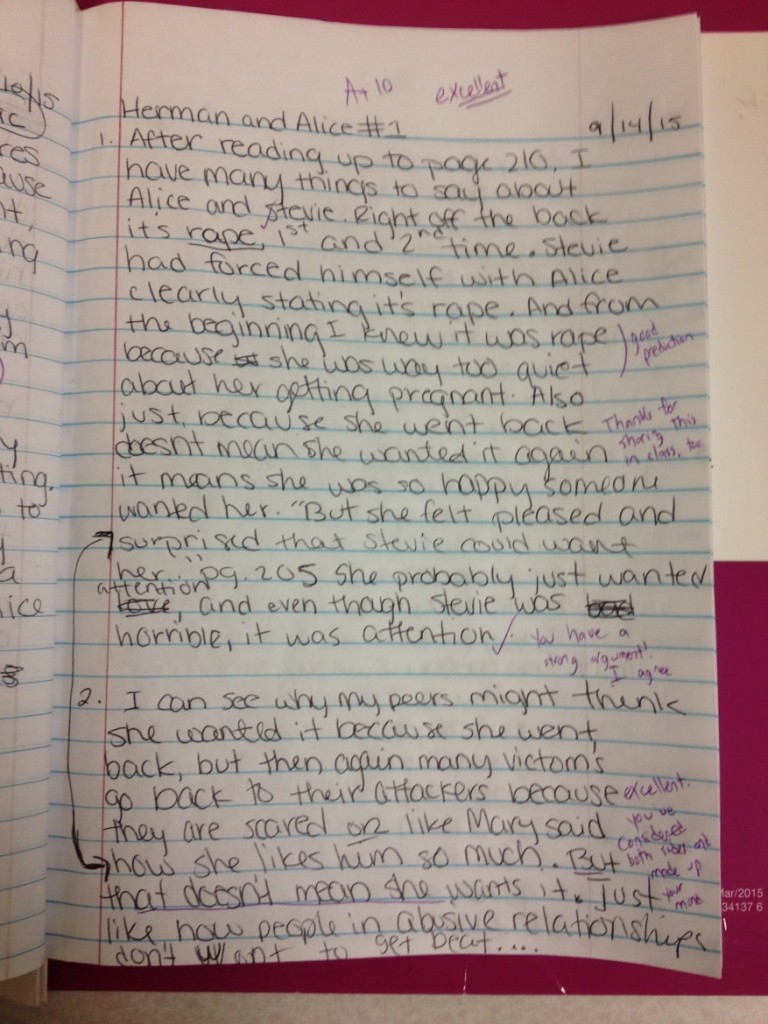 A+ 10 excellent
Herman and Alice #1 9/14/15
1. After reading up to page 210, I
have many things to say about
Alice and Stevie. Right off the back
its rape, 1st and 2nd time. Stevie
had forced himself with Alice
clearly stating it's rape. And from
the beginning I knew it was rape
because she was way too quiet
good
prediction
about her getting pregnant. Also
just because she went back
doesnt mean she wanted it again
Thanks for
sharing this
in class, too.
it means she was so happy someone
wanted her. "But she felt pleased and
surprised that Stevie could want
her..." pg. 205 She probably just wanted
attention, and even though Stevie was
horrible, it was attention.
you have a
strong argument!
I agree
2. I can see why my peers might think
she wanted it because she went
back, but then again many victom's
go back to their attackers because
they are scared or like Mary said
how she likes him so much. But
that doesn't mean she wants it. Just
excellent.
you've
considered
both sides and
made up
your mind
like how people in abusive relationships
don't want to get beat....
ces
ause
ng
m
y
ting.
to
a
ice
Mar/2015
34137 6